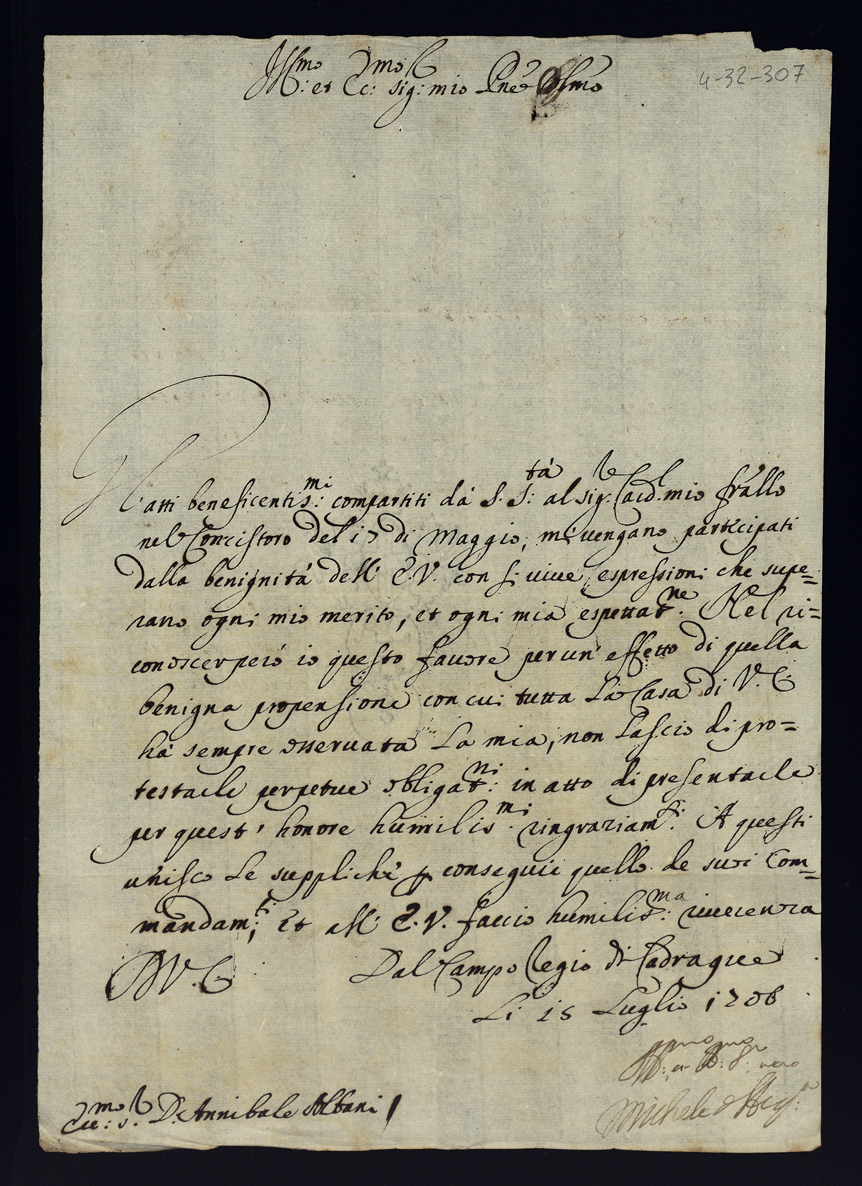 Ill:mo et Ecc:mo Sig:r mio P̃ne Oss.mo
4-32-307
Gl'atti beneficentis:mi compartiti dà S. S:tà al Sig:re Card.l mio fr̃allo
nel Concistoro del 17 di Maggio, mi vengano partecipati
dalla benignità dell' E.V. con si vive espressioni che supe=
rano ogni mio merito, et ogni mia espettat:ne. Nel ri=
conoscer però io questo favore per un' effetto di quella
benigna propensione con cui tutta La Casa di V.E.
hà sempre osservata La mia, non Lascio di pro=
testarle perpetue obligat:ni in atto di presentarle
per quest' honore humilis:mi ringraziam:ti. A questi
unisco Le suppliche p conseguir quello de suoi Com=
mandam:ti, Et all' E.V. faccio humilis:ma riverenza
D V. E. Dal Campo Regio di Cadraque
Li 15 Luglio 1706
Ecc:mo S.r D. Annibale Albani
Michele